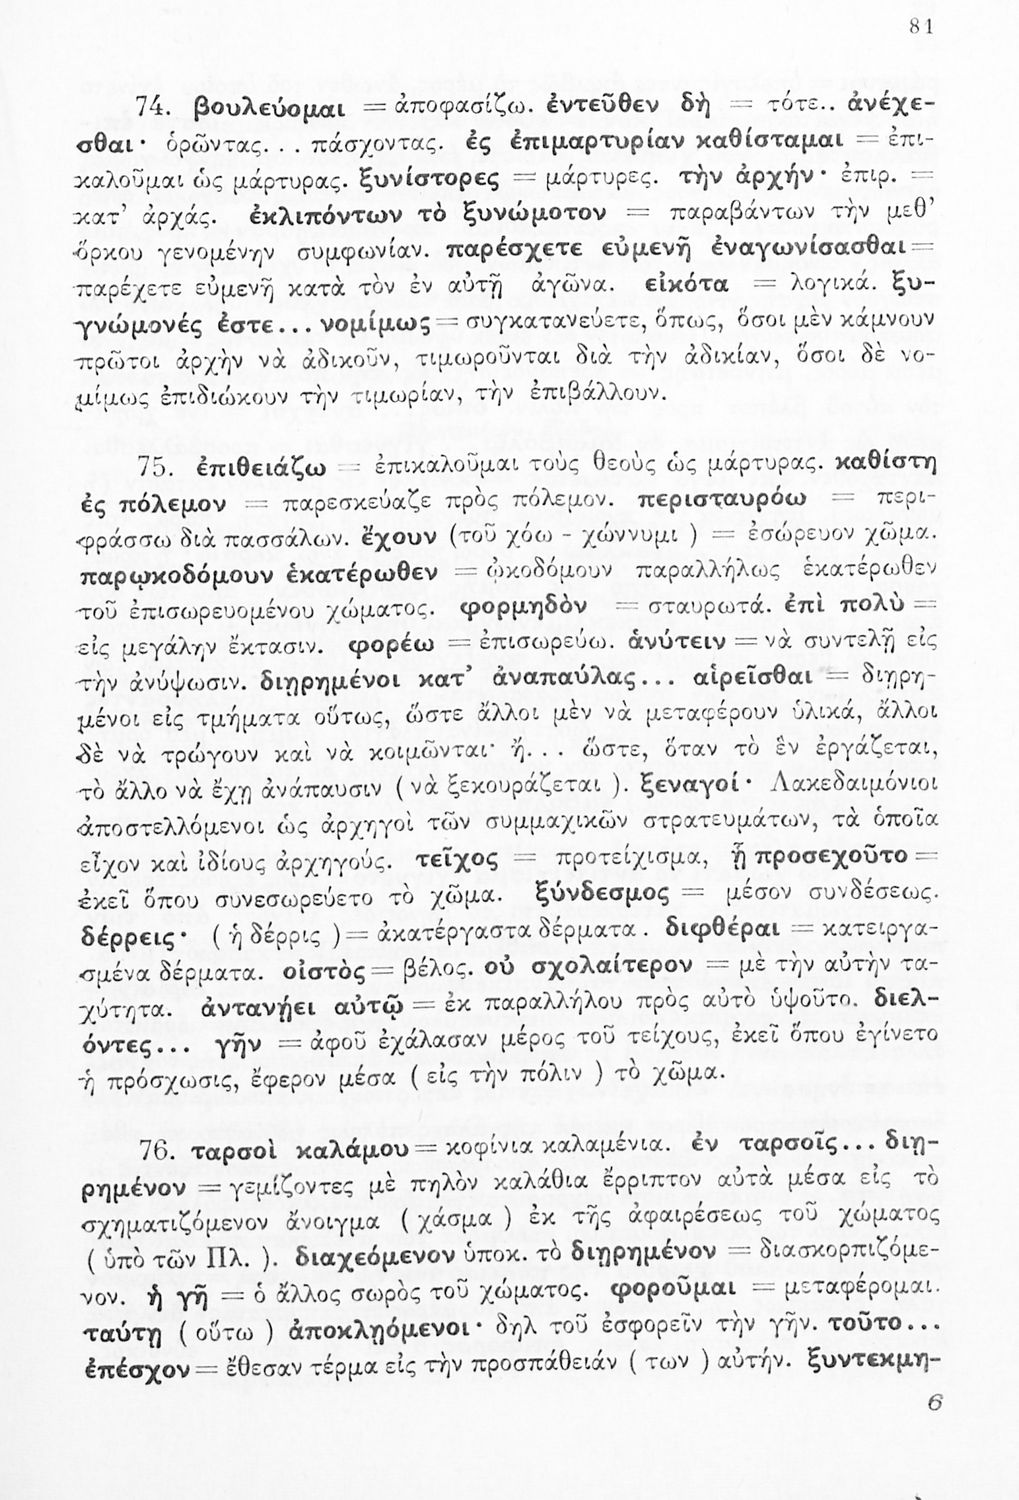 81
74. βουλεύομαι = ἀποφασίζω. ἐντεῦθεν δὴ = τότε.. ἀνέχε-
σθαι· ὁρῶντας. . . πάσχοντας. ἐς ἐπιμαρτυρίαν καθίσταμαι = ἐπι-
καλοῦμαι ὡς μάρτυρας. ξυνίστορες = μάρτυρες. τὴν ἀρχήν· ἐπιρ. =
κατ’ ἀρχάς. ἐκλιπόντων τὸ ξυνώμοτον = παραβάντων τὴν μεθ’
ὅρκου γενομένην συμφωνίαν. παρέσχετε εὐμενῆ ἐναγωνίσασθαι =
παρέχετε εὐμενῆ κατὰ τὸν ἐν αὐτῇ ἀγῶνα. εἰκότα = λογικά. ξυ-
γνώμονές ἐστε... νομίμως = συγκατανεύετε, ὅπως, ὅσοι μὲν κάμνουν
πρῶτοι ἀρχὴν νὰ ἀδικοῦν, τιμωροῦνται διὰ τὴν ἀδικίαν, ὅσοι δὲ νο-
μίμως ἐπιδιώκουν τὴν τιμωρίαν, τὴν ἐπιβάλλουν.
75. ἐπιθειάζω = ἐπικαλοῦμαι τοὺς θεοὺς ὡς μάρτυρας. καθίστη
ἐς πόλεμον = παρεσκεύαζε πρὸς πόλεμον. περισταυρόω = περι-
φράσσω διὰ πασσάλων. ἔχουν (τοῦ χόω - χώννυμι ) = ἐσώρευον χῶμα.
παρῳκοδόμουν ἑκατέρωθεν = ᾠκοδόμουν παραλλήλως ἑκατέρωθεν
τοῦ ἐπισωρευομένου χώματος. φορμηδὸν = σταυρωτά. ἐπὶ πολὺ =
εἰς μεγάλην ἔκτασιν. φορέω = ἐπισωρεύω. ἁνύτειν = νὰ συντελῇ εἰς
τὴν ἀνύψωσιν. διῃρημένοι κατ’ ἀναπαύλας... αἱρεῖσθαι = διῃρη-
μένοι εἰς τμήματα οὕτως, ὥστε ἄλλοι μὲν νὰ μεταφέρουν ὑλικά, ἄλλοι
δὲ νὰ τρώγουν καὶ νὰ κοιμῶνται· ἤ. . . ὥστε, ὅταν τὸ ἓν ἐργάζεται,
τὸ ἄλλο νὰ ἔχῃ ἀνάπαυσιν ( νὰ ξεκουράζεται ). ξεναγοί· Λακεδαιμόνιοι
ἀποστελλόμενοι ὡς ἀρχηγοὶ τῶν συμμαχικῶν στρατευμάτων, τὰ ὁποῖα
εἶχον καὶ ἰδίους ἀρχηγούς. τεῖχος = προτείχισμα, ᾗ προσεχοῦτο =
ἐκεῖ ὅπου συνεσωρεύετο τὸ χῶμα. ξύνδεσμος = μέσον συνδέσεως.
δέρρεις· ( ἡ δέρρις ) = ἀκατέργαστα δέρματα. διφθέραι = κατειργα-
σμένα δέρματα. οἰστὸς = βέλος. οὐ σχολαίτερον = μὲ τὴν αὐτὴν τα-
χύτητα. ἀντανῄει αὐτῷ = ἐκ παραλλήλου πρὸς αὐτὸ ὑψοῦτο. διελ-
όντες... γῆν = ἀφοῦ ἐχάλασαν μέρος τοῦ τείχους, ἐκεῖ ὅπου ἐγίνετο
ἡ πρόσχωσις, ἔφερον μέσα ( εἰς τὴν πόλιν ) τὸ χῶμα.
76. ταρσοὶ καλάμου = κοφίνια καλαμένια. ἐν ταρσοῖς... διῃ-
ρημένον = γεμίζοντες μὲ πηλὸν καλάθια ἔρριπτον αὐτὰ μέσα εἰς τὸ
σχηματιζόμενον ἄνοιγμα ( χάσμα ) ἐκ τῆς ἀφαιρέσεως τοῦ χώματος
( ὑπὸ τῶν Πλ. ). διαχεόμενον ὑποκ. τὸ διῃρημένον = διασκορπιζόμε-
νον. ἡ γῆ = ὁ ἄλλος σωρὸς τοῦ χώματος. φοροῦμαι = μεταφέρομαι.
ταύτῃ ( οὕτω ) ἀποκλῃόμενοι· δηλ τοῦ ἐσφορεῖν τὴν γῆν. τοῦτο...
ἐπέσχον = ἔθεσαν τέρμα εἰς τὴν προσπάθειάν ( των ) αὐτήν. ξυντεκμη-
6